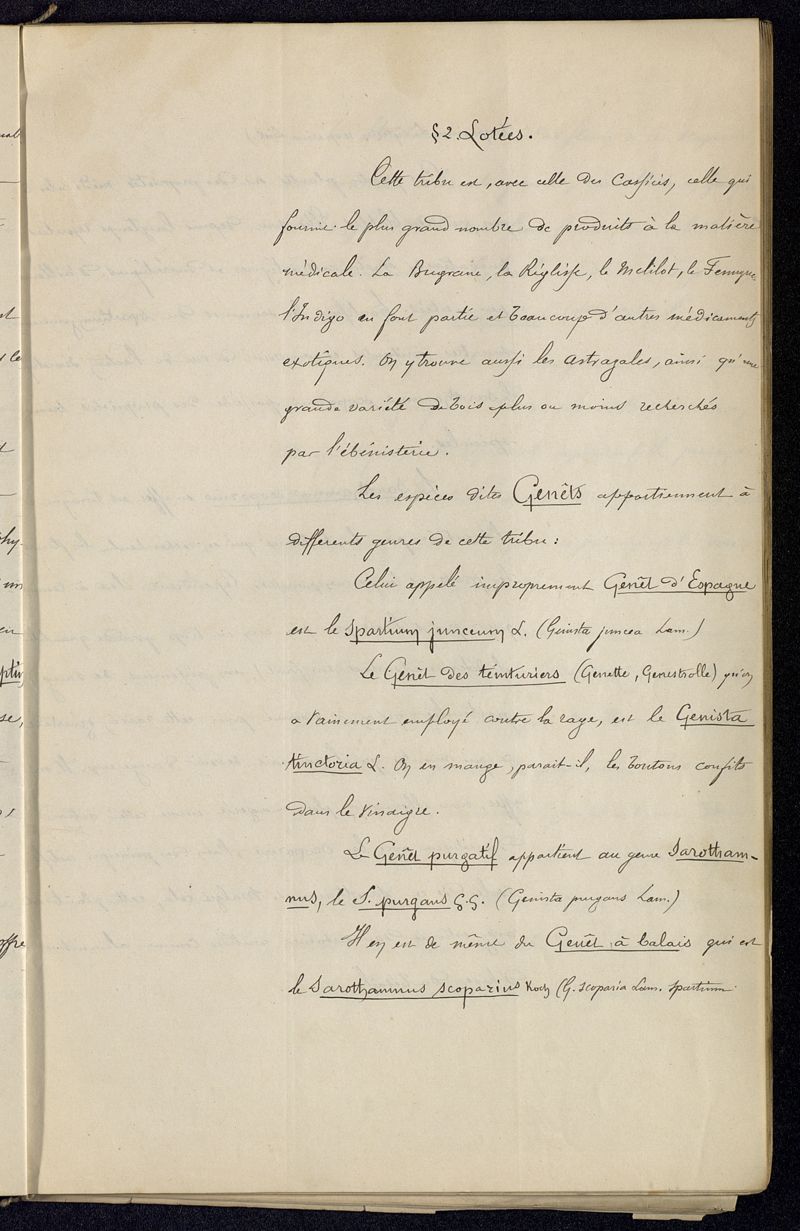 § 2. Lotées.
Cette tribu est, avec celle des Cassiées, celle qui
fournit le plus grand nombre de produits à la matière
médicale. La Bugrane, la Réglisse, le Mélilot, le Fenugrec,
l'Indigo en font partie et beaucoup d'autres médicaments
exotiques. On y trouve aussi les astragales, ainsi qu'une
grande variété de bois plus ou moins recherchés
par l'ébénisterie.
Les espèces dites Genêts appartiennent à
différents genres de cette tribu :
Celui appelé improprement Genêt d'Espagne
est le Spartium junceum L. (Genista juncea Lam.)
Le Genêt des teinturiers (Genette, Genestrolle) qu'on
a vainement employé contre la rage, est le Genista
tinctoria L. On en mange, parait-il, les boutons confits
dans le vinaigre.
Le Genêt purgatif appartient au genre Sarotham-
nus, le S. purgans G.G. (Genista purgans Lam.)
Il en est de même du Genêt à balais qui est
le Sarothamnus scoparius Koch (G. scoparia Lam. Spartium